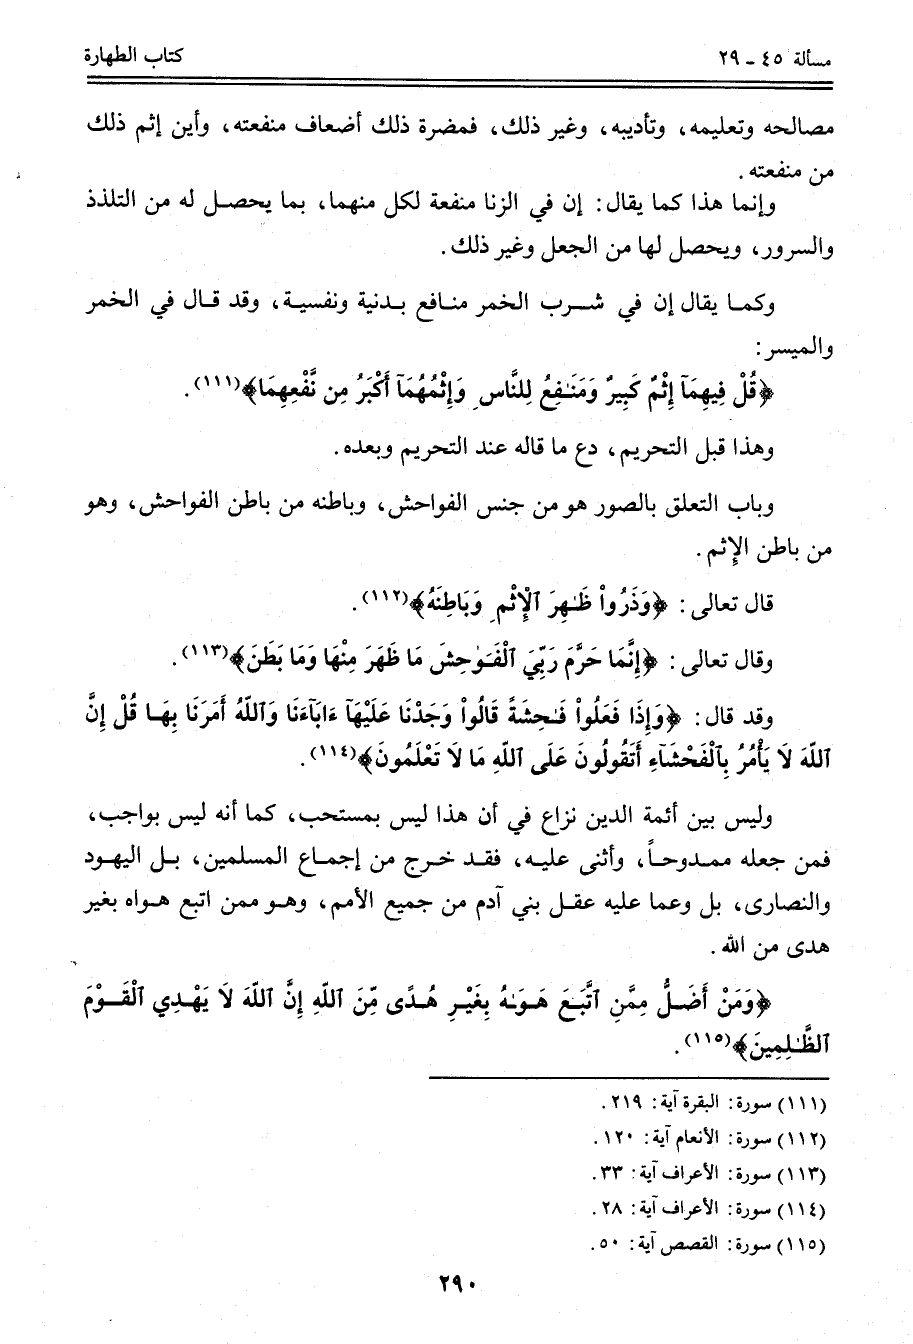 مسألة ٤٥ - ٢٩
كتاب الطهارة
مصالحه وتعليمه، وتأديبه، وغير ذلك، فمضرة ذلك أضعاف منفعته، وأين إثم ذلك
من منفعته.
وإنما هذا كما يقال: إن في الزنا منفعة لكل منهما، بما يحصل له من التلذذ
والسرور، ويحصل لها من الجعل وغير ذلك.
وكما يقال إن في شرب الخمر منافع بدنية ونفسية، وقد قال في الخمر
والميسر:
﴿قُلْ فِيهِمَآ إِثْمٌ كَبِيرٌ وَمَنَـٰفِعُ لِلنَّاسِ وَإِثْمُهُمَآ أَكْبَرُ مِن نَّفْعِهِمَا﴾(١١١).
وهذا قبل التحريم، دع ما قاله عند التحريم وبعده.
وباب التعلق بالصور هو من جنس الفواحش، وباطنه من باطن الفواحش، وهو
من باطن الإثم.
قال تعالى: ﴿وَذَرُواْ ظَـٰهِرَ ٱلْإِثْمِ وَبَاطِنَهُ﴾(١١٢).
وقال تعالى: ﴿إِنَّمَا حَرَّمَ رَبِّيَ ٱلْفَوَٰحِشَ مَا ظَهَرَ مِنْهَا وَمَا بَطَنَ﴾(١١٣).
وقد قال: ﴿وَإِذَا فَعَلُواْ فَـٰحِشَةً قَالُواْ وَجَدْنَا عَلَيْهَآ ءَابَآءَنَا وَٱللَّهُ أَمَرَنَا بِهَا قُلْ إِنَّ
ٱللَّهَ لَا يَأْمُرُ بِٱلْفَحْشَآءِ أَتَقُولُونَ عَلَى ٱللَّهِ مَا لَا تَعْلَمُونَ﴾(١١٤).
وليس بين أئمة الدين نزاع في أن هذا ليس بمستحب، كما أنه ليس بواجب،
فمن جعله ممدوحاً، وأثنى عليه، فقد خرج من إجماع المسلمين، بل اليهود
والنصارى، بل وعما عليه عقل بني آدم من جميع الأمم، وهو ممن اتبع هواه بغير
هدى من الله.
﴿وَمَنْ أَضَلُّ مِمَّنِ ٱتَّبَعَ هَوَىٰهُ بِغَيْرِ هُدًى مِّنَ ٱللَّهِ إِنَّ ٱللَّهَ لَا يَهْدِي ٱلْقَوْمَ
ٱلظَّـٰلِمِينَ﴾(١١٥).
(١١١) سورة: البقرة آية: ٢١٩.
(١١٢) سورة: الأنعام آية: ١٢٠.
(١١٣) سورة: الأعراف آية: ٣٣.
(١١٤) سورة: الأعراف آية: ٢٨.
(١١٥) سورة: القصص آية: ٥٠.
٢٩٠